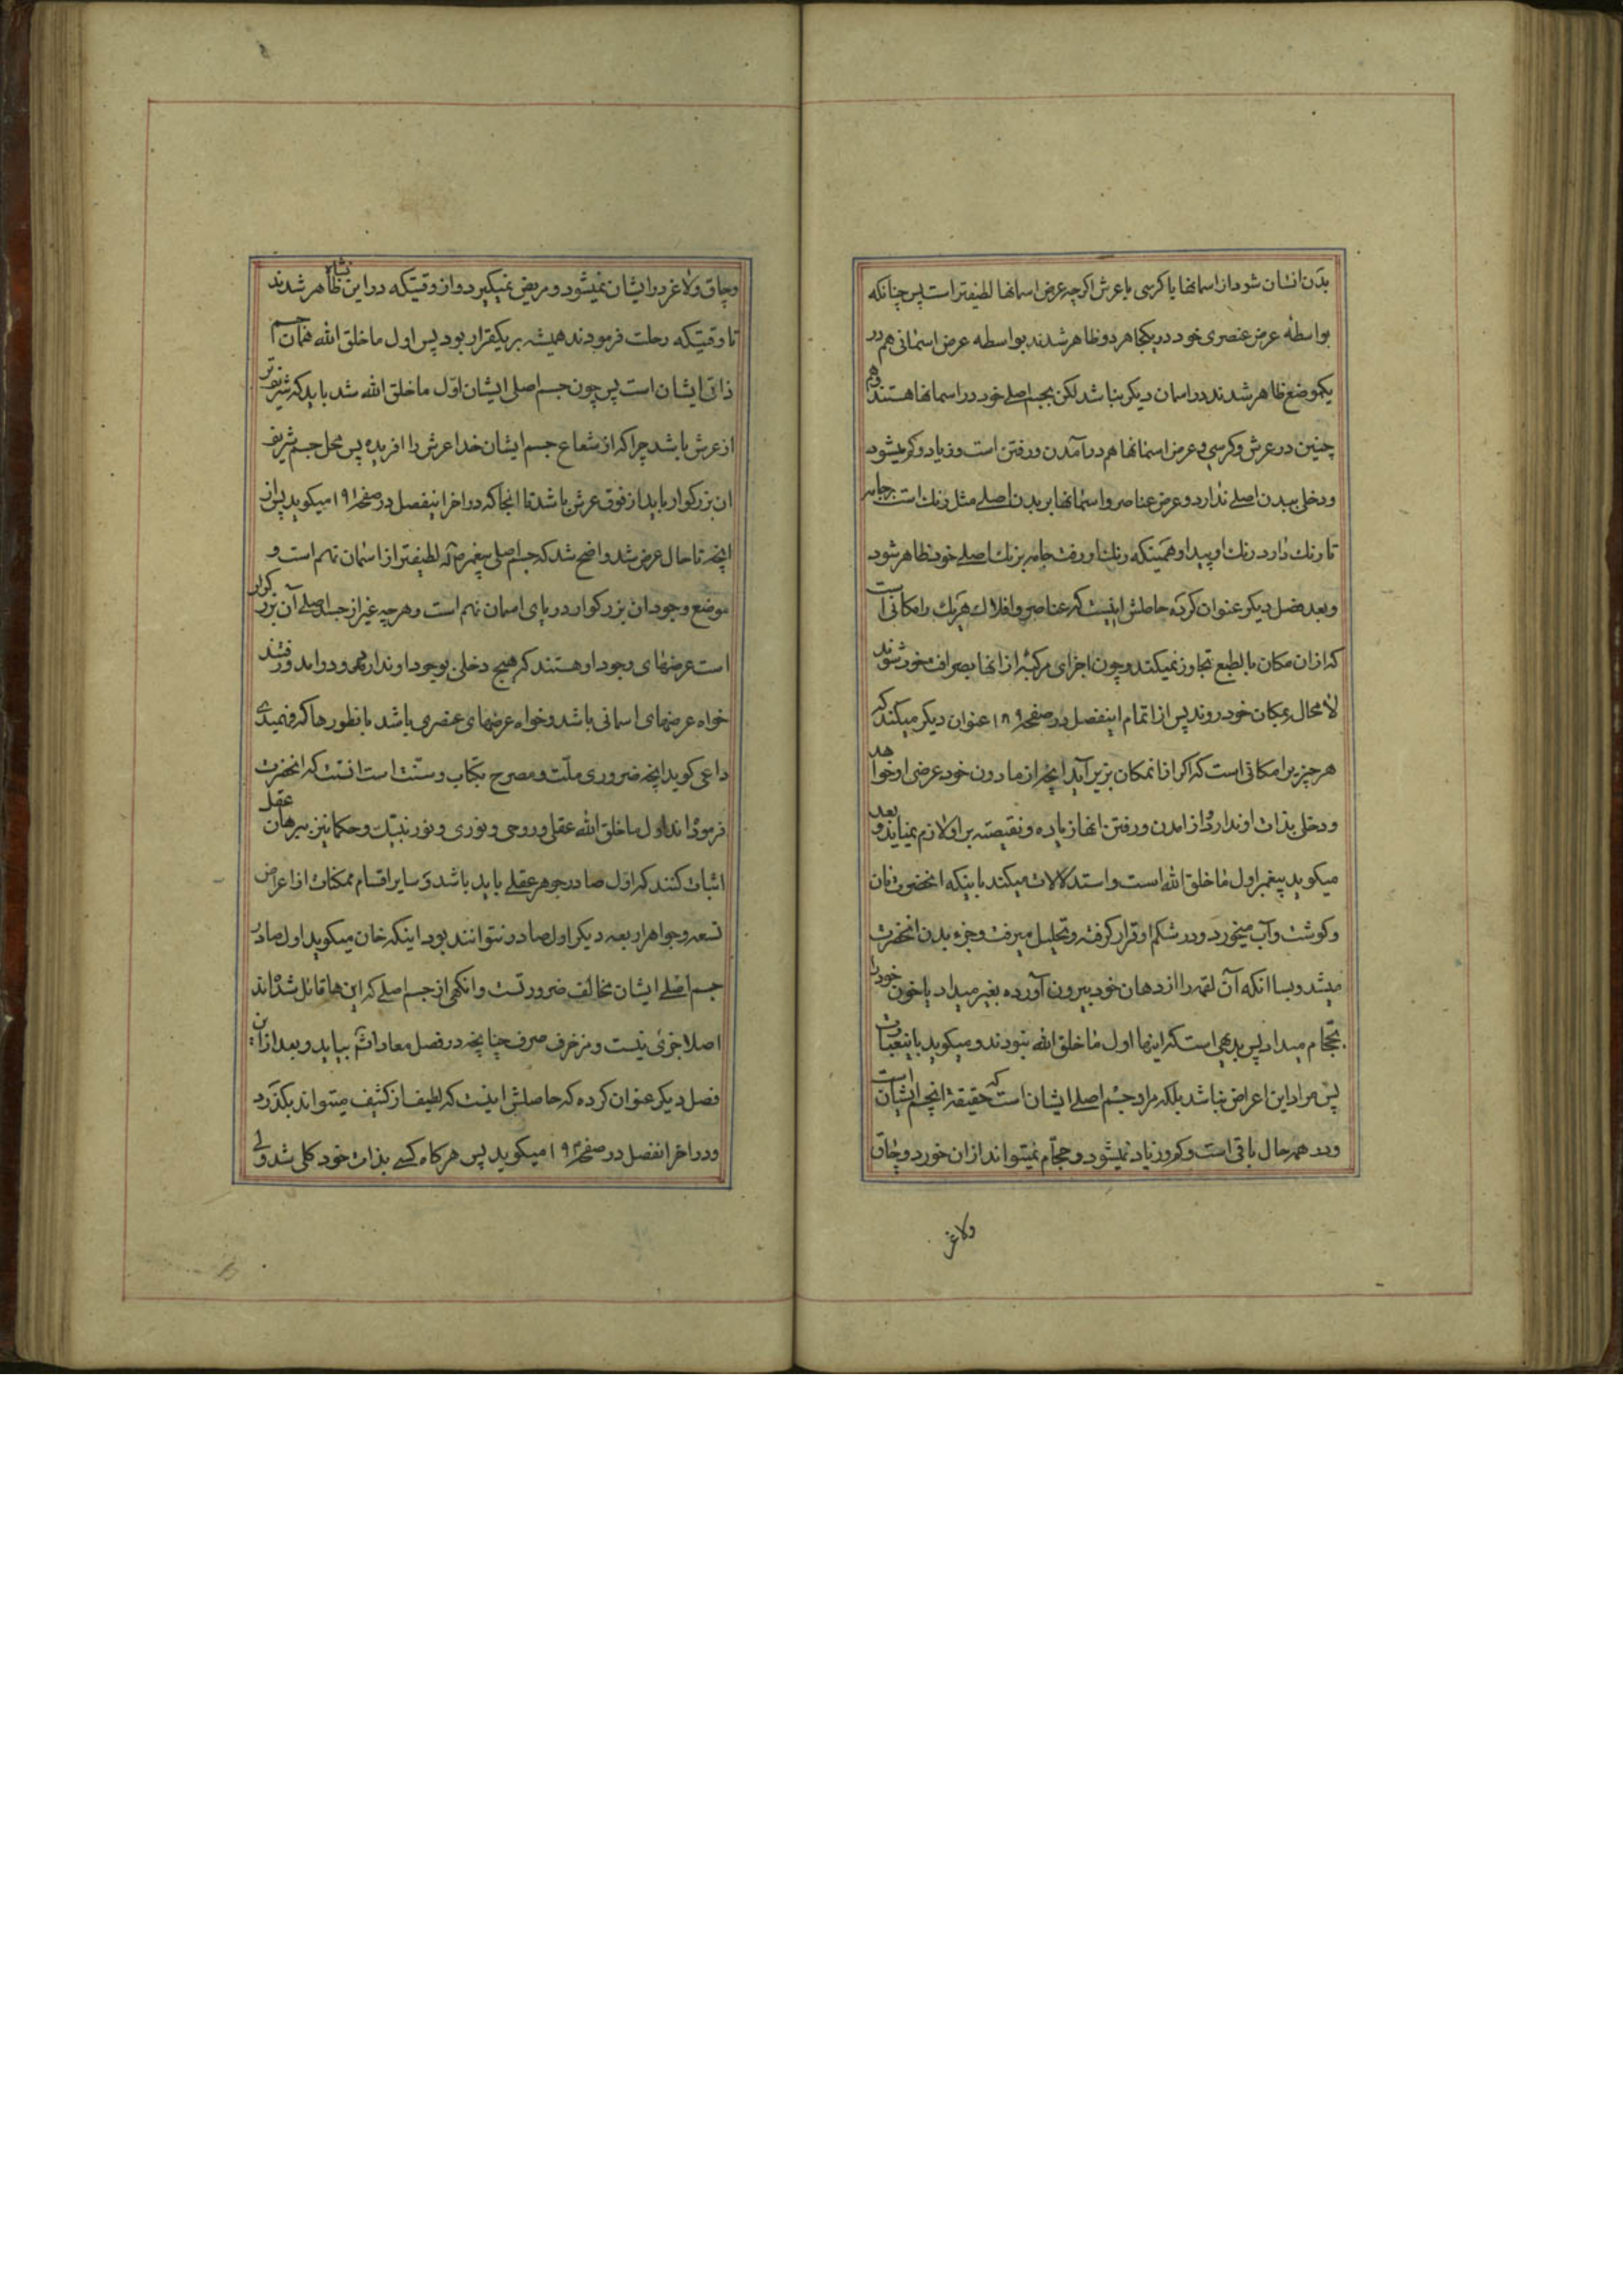 بدن انسان شود از اسمانها یا کرسی یا عرش اکرچه عرض اسمانها لطیفتر است پس چنانکه
بواسطه عرض عنصری خود در یکجا هر دو ظاهر شدند بواسطه عرض اسمانی هم در
یکموضع ظاهر شدند در اسمان دیکر نباشد لکن بجسم اصلے خود در اسمانها هستند و هم
چنین در عرش و کرسی و عرض اسمانها هم در آمدن و رفتن است و زیاد و کم میشود
و دخلی ببدن اصلے ندارد و عرض عناصر و اسمانها بر بدن اصلے مثل رنك است بر جامه
تا رنك دارد رنك او پیدا و همینکه رنك او رفت جامه برنك اصلے خود ظاهر شود
و بعد فصل دیکر عنوان کرده حاصلش اینست که عناصر و افلاك هریك را مکانی است
که از ان مکان بالطبع تجاوز نمیکند و چون اجزای مرکبه از انها بصرافت خود شوند
لا محال بمکان خود روند پس از اتمام اینفصل در صفحه ۱۸۹ عنوان دیکر میکند که
هر چیز را مکانی است که اکر از انمکان بزیر آید انچه از مادون خود عرضی او خواهد
و دخلی بذات او ندارد و از امدن و رفتن انها زیاده و نقیصه بر او لازم نمیاید و بعد
میکوید پیغمبر اول ما خلق الله است و استدلالات میکند باینکه انحضرت نان
و کوشت و آب میخورد و در شکم او قرار کرفته و تحلیل میرفت و جزء بدن انحضرت
میشد و بسا انکه آن لقمه را از دهان خود بیرون آورده بغیر میداد یا خون خود را
بحجام میداد پس بدیهی است که اینها اول ما خلق الله نبودند و میکوید باینعبارت
پس مراد این اعراض نباشد بلکه مراد جسم اصلے ایشان است که حقیقة انجسم ایشان است
و در همه حال باقی است و کم و زیاد نمیشود و حجام نمیتواند از ان خورد و چاق
ولاغر
و چاق و لاغر در ایشان نمیشود و مریض نمیکیرد و از وقتیکه در این نشأه ظاهر شدند
تا وقتیکه رحلت فرمودند همیشه بر یکقرار بود پس اول ما خلق الله همان جسم
ذاتی ایشان است پس چون جسم اصلی ایشان اوّل ما خلق الله شد باید که شریفتر
از عرش باشد چرا که از شعاع جسم ایشان خدا عرش را افریده پس محل جسم شریف
ان بزرکوار باید از فوق عرش باشد تا انجا که در اخر اینفصل در صفحه ۱۹۱ میکوید پس از
انچه تا حال عرض شد واضح شد که جسم اصلی پیغمبر ص لطیفتر از اسمان نهم است و
موضع وجود ان بزرکوار در بالای اسمان نهم است و هر چه غیر از جسد اصلے آن بزرکوار
است عرضهای وجود او هستند که هیچ دخلی بوجود او ندارد و درامد و رفتند
خواه عرضهای اسمانی باشد و خواه عرضهای عنصری باشد بانطورها که فهمیدی
داعی کوید انچه ضروری ملّت و مصرح بکتاب و سنّت است انست که انحضرت
فرموده اند اول ما خلق الله عقلی و روحی و نوری و نور نبیّك و حکما نیز ببرهان عقل
اثبات کنند که اوّل صادر جوهر عقلے باید باشد و سایر اقسام ممکنات از اعراض
تسعه و جواهر اربعه دیکر اول صادر نتوانند بود اینکه خان میکوید اول صادر
جسم اصلے ایشان مخالف ضرورتست وانکهی از جسم اصلے که این ها قائل شده اند
اصلا خبری نیست و مزخرف صرف چنانچه در فصل معاد انشاء بیاید و بعد از این
فصل دیکر عنوان کرده که حاصلش اینست که لطیف از کثیف میتواند بکذرد
و در اخر انفصل در صفحه ۱۹۳ میکوید پس هر کاه کسے بذات خود کلی شد ولی